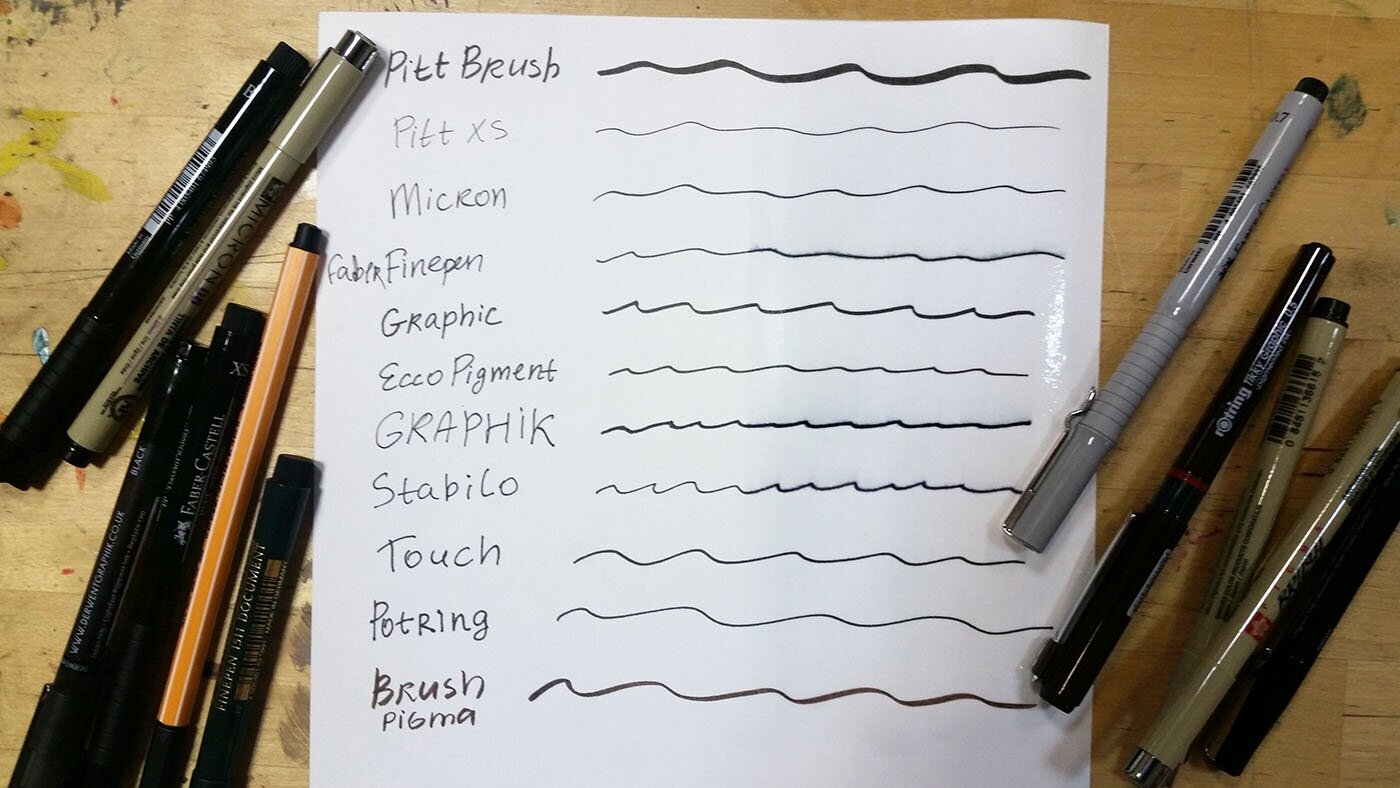 Pitt Brush
Pitt XS
Micron
Faber Finepen
Graphic
Ecco Pigment
GRAPHIK
Stabilo
Touch
Rotring
BRUSH
PIGMA
MICRON 08
BLACK
WWW.DERWENTGRAPHIK.CO.UK
XS
FABER-CASTELL
FINEPEN 1511 DOCUMENT
MADE IN GERMANY
0.7
rotring Tikky Graphic